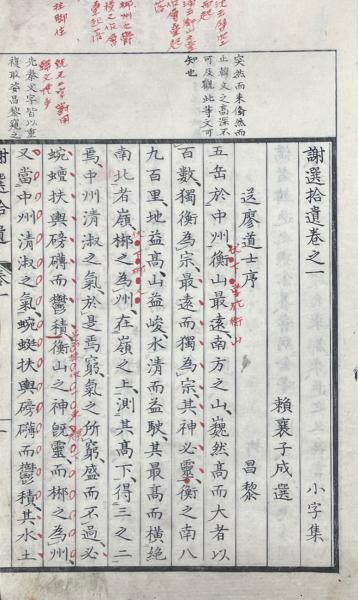 突然而来翛然而
止韓文之高深不
可及觀此等文可
知也
謝選拾遺卷之一
小字集
賴襄子成選
送廖道士序 昌黎
五岳於中州衡山最遠南方之山巍然高而大者以
百數獨衡為宗最遠而獨為宗其神必靈衡之南八
九百里地益高山益峻水清而益駛其最高而橫絶
南北者嶺郴之為州在嶺之上測其高下得三之二
焉中州清淑之氣於是焉窮氣之所窮盛而不過必
蜿蟺扶輿磅礴而鬱積衡山之神既靈而郴之為州
又當中州清淑之氣蜿蜒扶輿磅礴而鬱積其水土
謝選拾遺 卷一